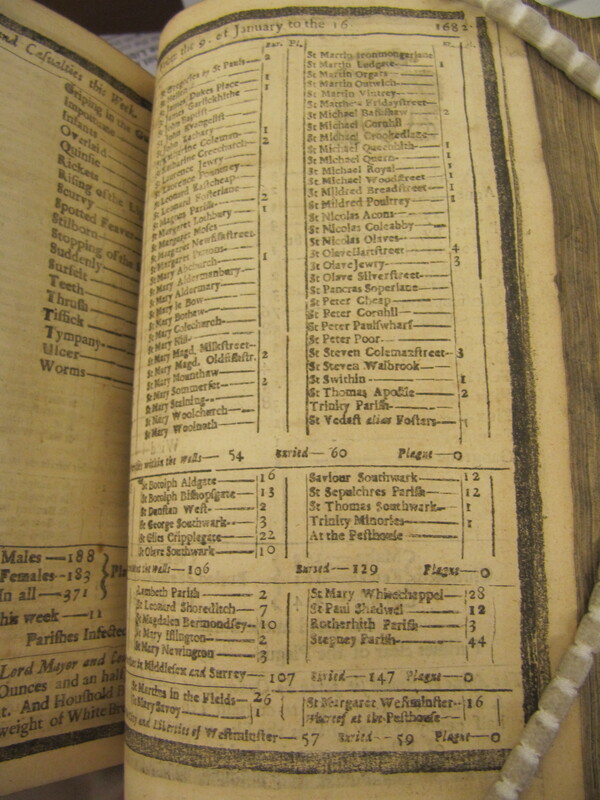 and Casualties this Week.
Griping in the
Imposthume
Infants
Overlaid
Quinsie
Rickets
Rising of the
Scurvy
Spotted Feaver
Stilborn
Stopping of the
Suddenly
Surfeit
Teeth
Thrush
Tissick
Tympany
Ulcer
Worms
Males — 188
Females — 183
In all — 371
his week — 11
Parishes Infected
Lord Mayor and
Ounces and an half
t. And Houshold
weight of White
from the 9. of January to the 16. 1682.
Bur. Pl.
by St Pauls — 2
Dukes Place — 1
Garlickhithe — 1
St John Evangelist
St John Zachary — 1
Katharine Coleman — 2
Katharine Creechurch
Lawrence Jewry
Lawrence Pountney
St Leonard Eastcheap
St Leonard Fosterlane — 2
St Magnus Parish — 1
St Margaret Lothbury
St Margaret Moses
St Margaret Newfishstreet
St Margaret Pattons — 1
St Mary Abchurch
St Mary Aldermanbury
St Mary Aldermary
St Mary le Bow
St Mary Bothaw
St Mary Colechurch
St Mary Hill
St Mary Magd. Milkstreet
St Mary Magd. Oldfishstr. 2
St Mary Mounthaw
St Mary Sommerset — 2
St Mary Staining
St Mary Woolchurch
St Mary Woolnoth
St Martin Ironmongerlane
St Martin Ludgate — 1
St Martin Orgars
St Martin Outwich
St Martin Vintrey
St Matthew Fridaystreet
St Michael Bassishaw — 2
St Michael Cornhil
St Michael Crookedlane
St Michael Queenhith — 1
St Michael Quern — 1
St Michael Royal — 1
St Michael Woodstreet — 1
St Mildred Breadstreet — 1
St Mildred Poultrey — 1
St Nicolas Acons
St Nicolas Coleabby
St Nicolas Olaves
St Olave Hartstreet — 4
St Olave Jewry — 3
St Olave Silverstreet
St Pancras Soperlane
St Peter Cheap
St Peter Cornhil
St Peter Paulswharf
St Peter Poor
St Steven Colemanstreet — 3
St Steven Walbrook
St Swithin — 1
St Thomas Apostle — 2
Trinity Parish
St Vedast alias Fosters — 1
within the Walls — 54 Buried — 60 Plague — 0
St Botolph Aldgate — 16
St Botolph Bishopsgate — 13
St Dunstan West — 2
St George Southwark — 3
St Giles Cripplegate — 22
St Olave Southwark — 10
Saviour Southwark — 12
St Sepulchres Parish — 12
St Thomas Southwark — 1
Trinity Minories — 1
At the Pesthouse
the Walls — 106 Buried — 129 Plague — 0
Lambeth Parish — 2
St Leonard Shoreditch — 7
St Magdalen Bermondsey — 10
St Mary Islington — 2
St Mary Newington — 3
St Mary Whitechappel — 28
St Paul Shadwel — 12
Rotherhith Parish — 3
Stepney Parish — 44
in Middlesex and Surrey — 107 Buried — 147 Plague — 0
St Martins in the Fields — 26
St Mary Savoy — 1
St Margaret Westminster — 16
Whereof at the Pesthouse
and Liberties of Westminster — 57 Buried — 59 Plague — 0